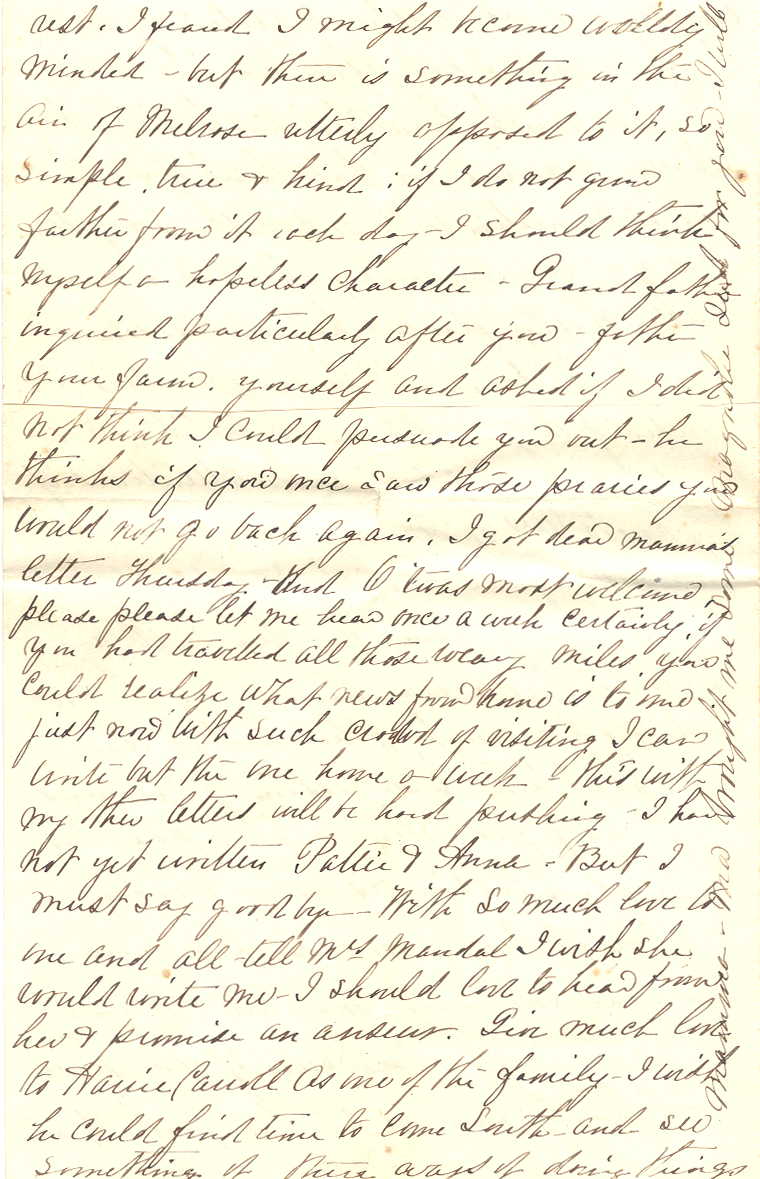 rest. I feared I might become worldly
minded - but there is something in the
air of Melrose utterly opposed to it, so
simple, true & kind; if I do not grow
farther from it each day - I should think
myself a hopeless character - Grand father
inquired particularly after you - father
your farm. yourself and asked if I did
not think I could persuade you out - he
thinks if you once saw those praries you
would not go back again. I got dear mamma's
letter Thursday - And O 'twas most welcome,
please please let me hear once a week certainly, if
you had travelled all those weary miles you
could realize what news from home is to me
just now with such crowd of visiting I can
write but the one home a week - this with
my other letters will be hard pushing - I have
not yet written Pattie & Anna - But I
must say good bye - With so much love to
one and all - tell Mrs Mandal I wish she
would write me - I should love to hear from
her & promise an answer. Give much love
to Harrie Carroll as one of the family - I wish
he could find time to come South - and see
something of these ways of doing things
Mamma - Ma brought me some Magnolia seed for you - I will